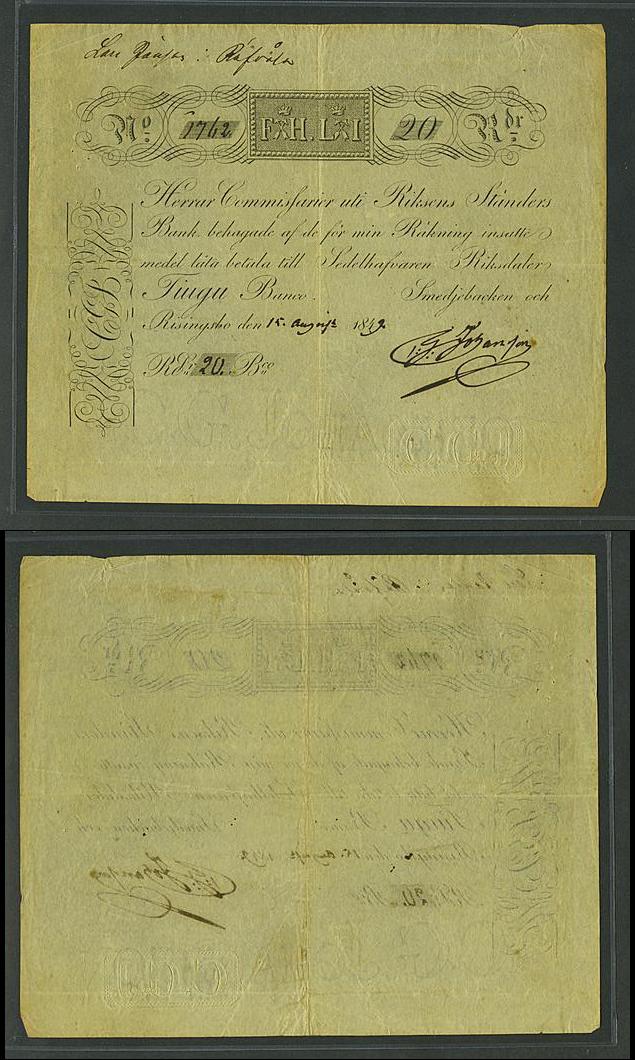 Lars Jansson i Råfvåla
No 1762 F H. L I 20 Rdr
Herrar Commissarier uti Riksens Ständers
Bank behagade af de för min Räkning insatte
medel låta betala till Sedelhafvaren Riksdaler
Tjugu Banco. Smedjebacken och
Risingsbo den 15 August 1849.
RDr 20. Bco